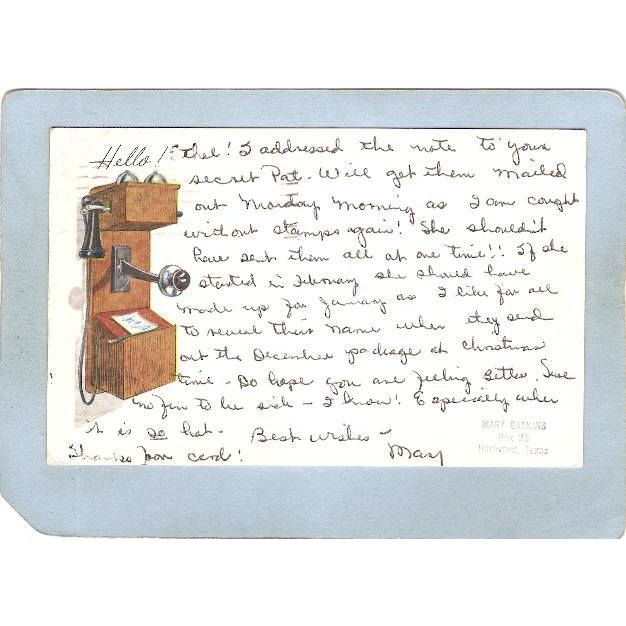 Hello! Thel! I addressed the note to your
secret Pat. Will get them mailed
out Monday Morning as I am caught
without stamps again! She shouldn't
have sent them all at one time!! If she
started in February she should have
made up for January as I like for all
to reveal their name when they send
out the December package at Christmas
time - Do hope you are feeling better.
no fun to be sick - I know! Especially when
it is so hot. Best wishes -
Thanks for card! Mary
MARY GASKINS
Box 23
Texas